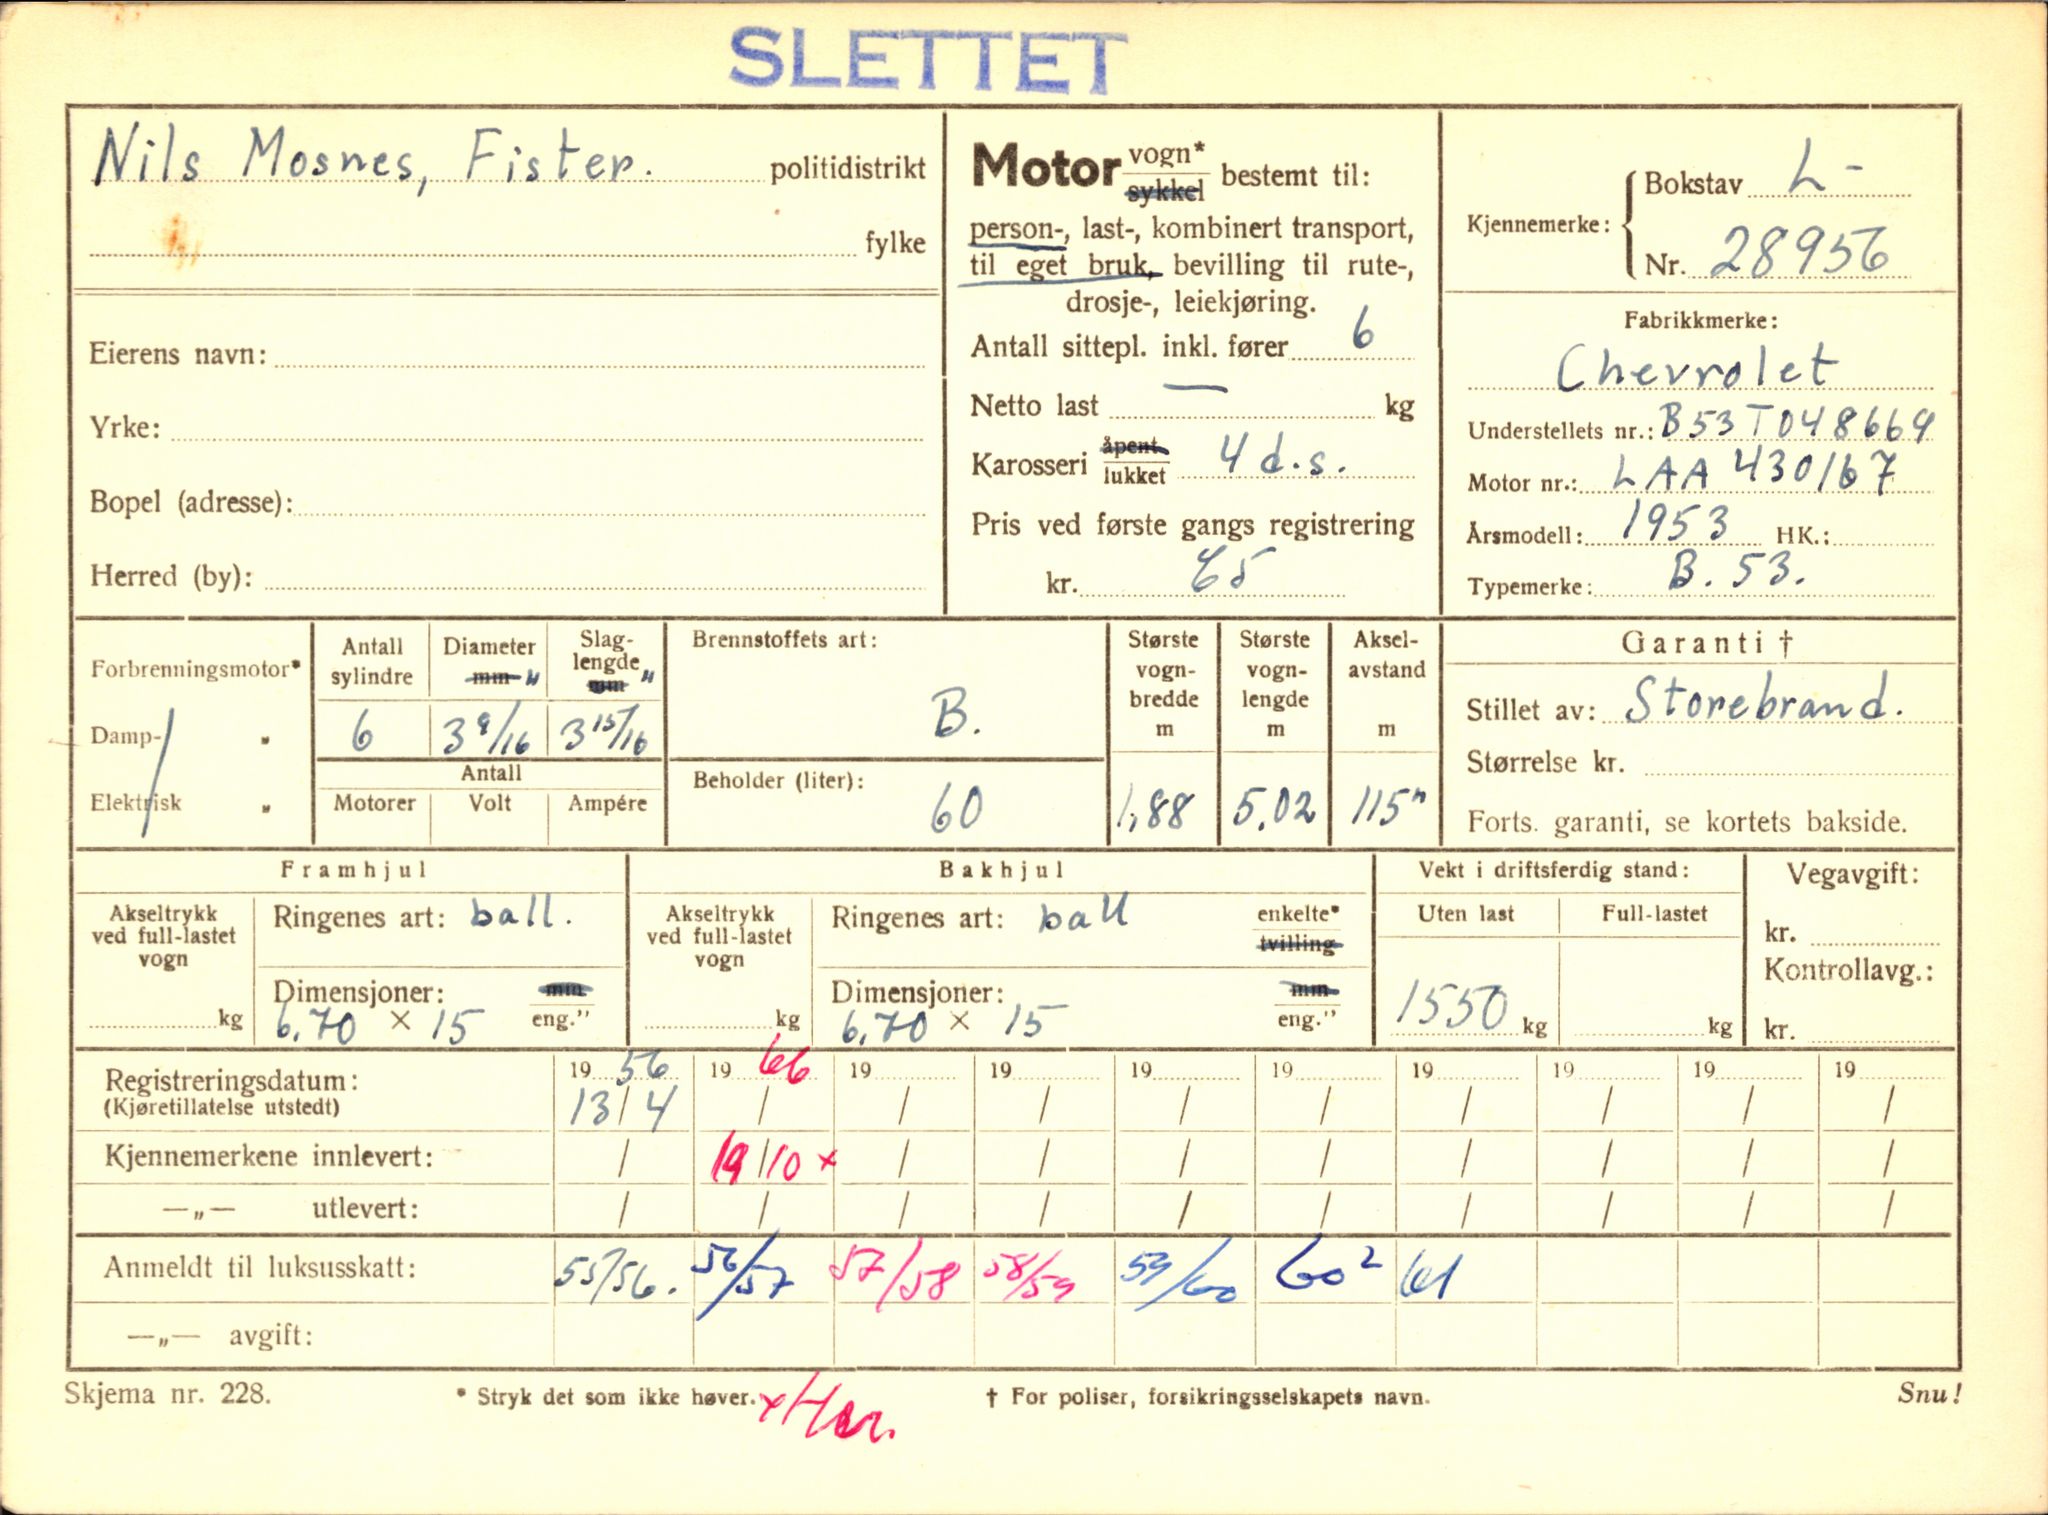 SLETTET
Nils Mosnes, Fister. politidistrikt
fylke
Eierens navn:
Yrke:
Bopel (adresse):
Herred (by):
Motor vogn* sykkel bestemt til:
person-, last-, kombinert transport,
til eget bruk, bevilling til rute-,
drosje-, leiekjøring.
Antall sittepl. inkl. fører 6
Netto last — kg
Karosseri åpent lukket 4 d.s.
Pris ved første gangs registrering
kr.
Kjennemerke: Bokstav L-
Nr. 28956
Fabrikkmerke:
Chevrolet
Understellets nr.: B53T048669
Motor nr.: LAA 430167
Årsmodell: 1953 HK.:
Typemerke: B. 53.
Forbrenningsmotor*
Damp- "
Elektrisk "
Antall sylindre
Diameter mm "
Slaglengde mm "
6 3 9/16 3 15/16
Antall
Motorer Volt Ampére
Brennstoffets art:
B.
Beholder (liter):
60
Største vogn-bredde m
1,88
Største vogn-lengde m
5.02
Aksel-avstand m
115"
Garanti †
Stillet av: Storebrand.
Størrelse kr.
Forts. garanti, se kortets bakside.
Framhjul
Akseltrykk ved full-lastet vogn
kg
Ringenes art: ball.
Dimensjoner: mm
6.70 × 15 eng."
Bakhjul
Akseltrykk ved full-lastet vogn
kg
Ringenes art: ball enkelte* tvilling
Dimensjoner: mm
6.70 × 15 eng."
Vekt i driftsferdig stand:
Uten last Full-lastet
1550 kg kg
Vegavgift:
kr.
Kontrollavg.:
kr.
Registreringsdatum: 19 56 19 66 19 19 19 19 19 19 19 19
(Kjøretillatelse utstedt) 13/4 / / / / / / / / /
Kjennemerkene innlevert: / 19/10 x / / / / / / / /
—„— utlevert: / / / / / / / / / /
Anmeldt til luksusskatt: 55/56. 56/57 57/58 58/59 59/60 60² 61
—„— avgift:
Skjema nr. 228. * Stryk det som ikke høver. † For poliser, forsikringsselskapets navn. Snu!